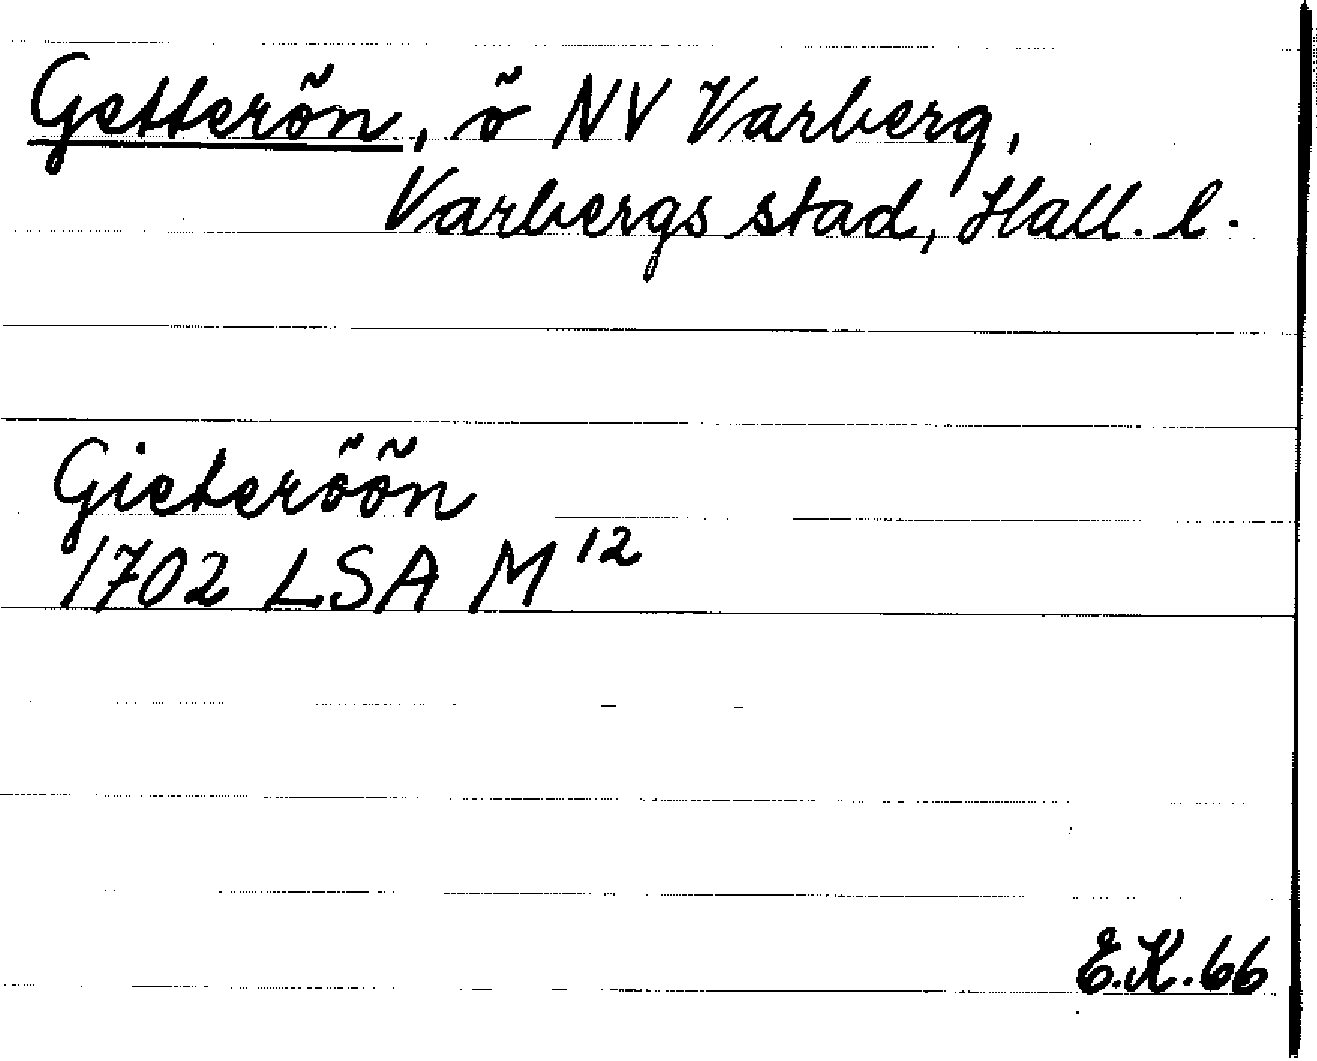 Getterön, ö NV Varberg,
Varbergs stad, Hall. l.
Gieteröön
1702 LSA M¹²
E.K. 66